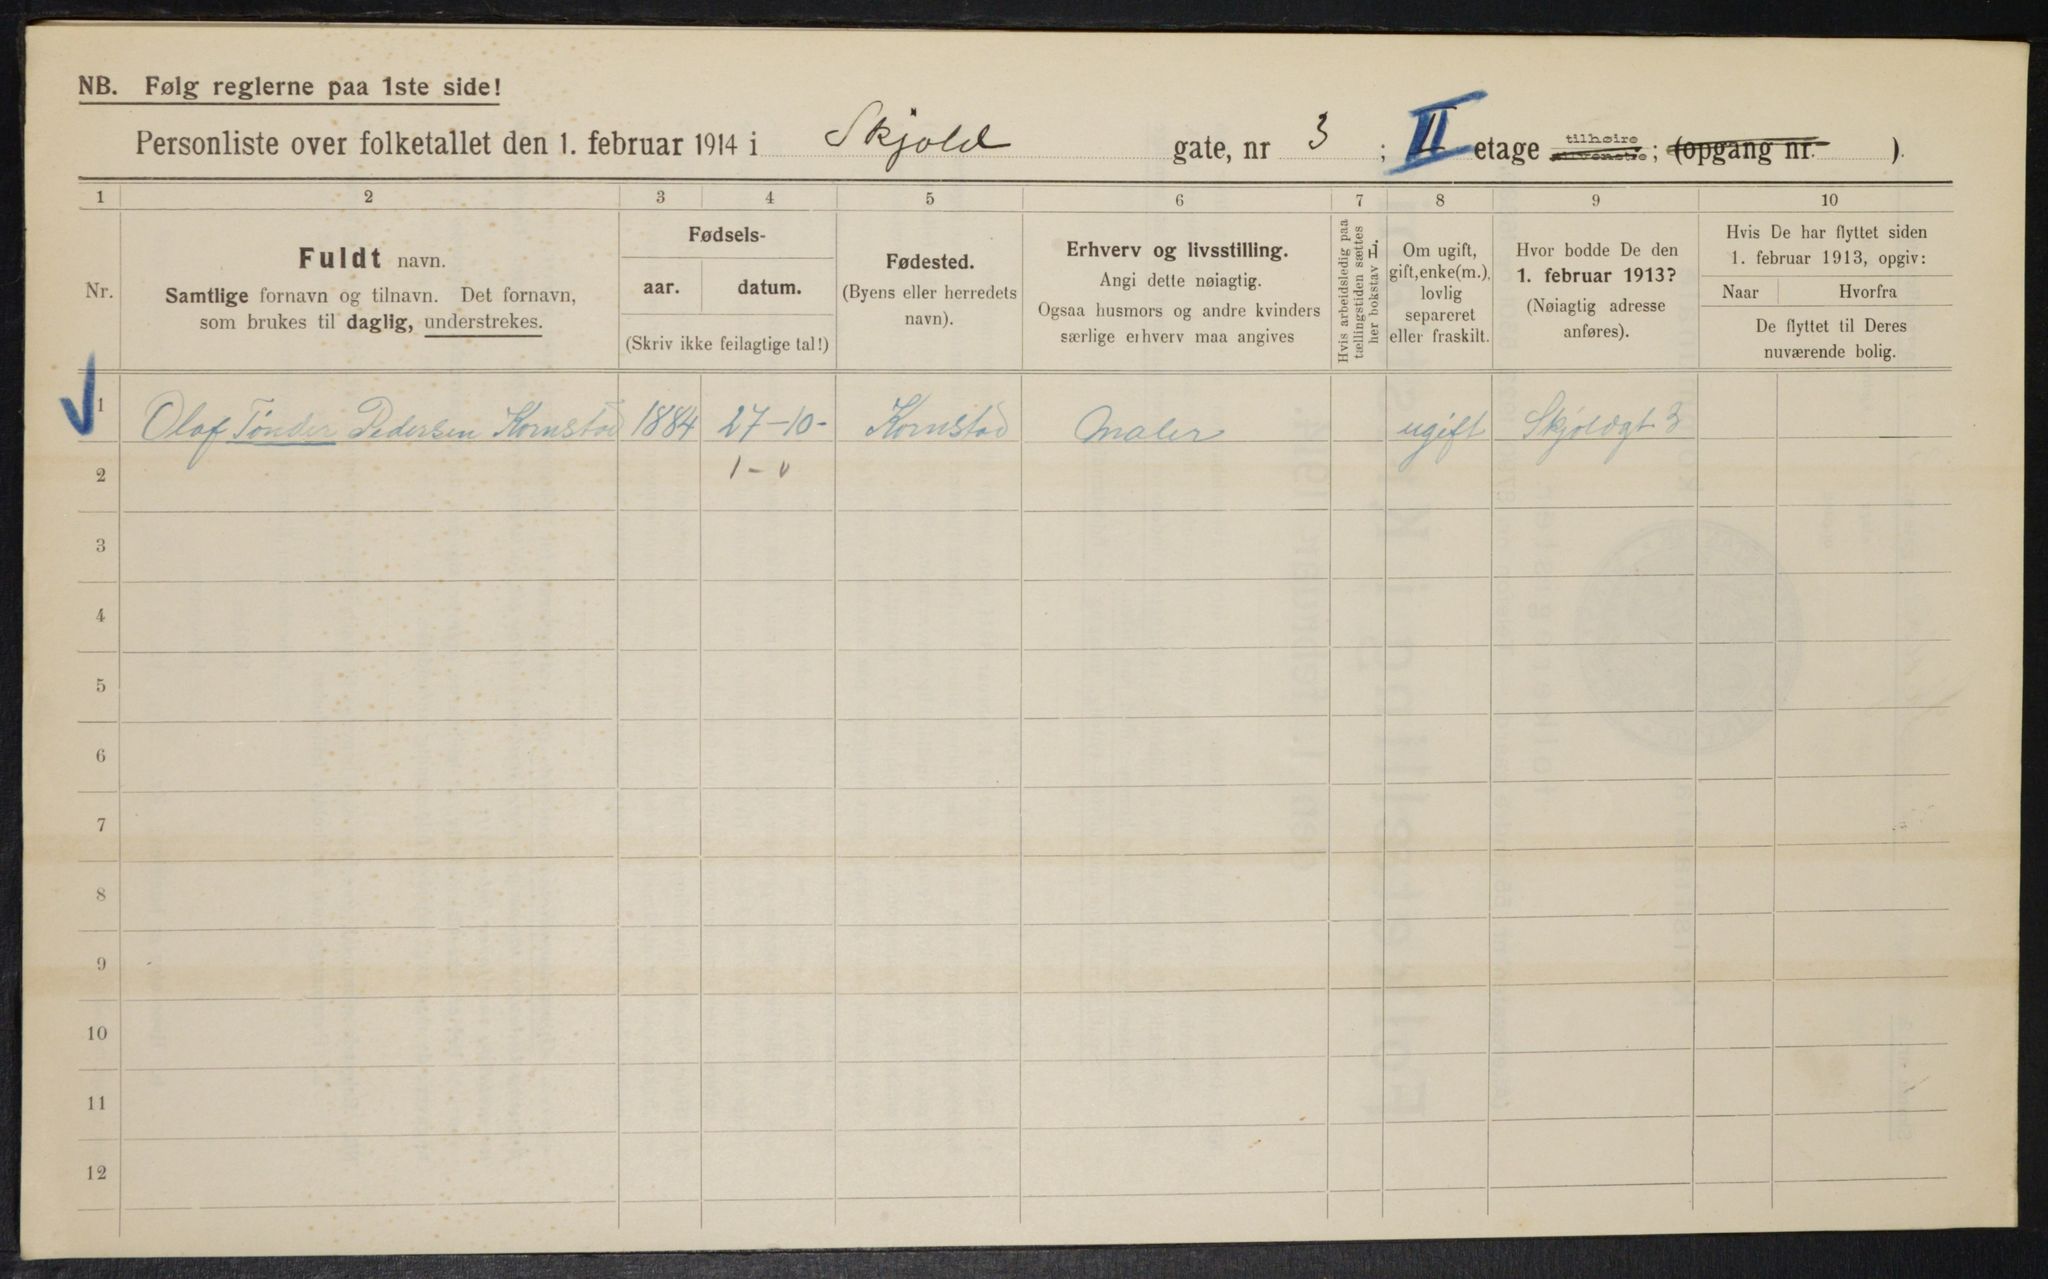 NB. Følg reglerne paa 1ste side!
Personliste over folketallet den 1. februar 1914 i Skjold gate, nr 3 ; II etage tilhøire ; (opgang nr. ).
1 2 3 4 5 6 7 8 9 10
Nr.
Fuldt navn.
Samtlige fornavn og tilnavn. Det fornavn,
som brukes til daglig, understrekes.
Fødsels-
aar. datum.
(Skriv ikke feilagtige tal!)
Fødested.
(Byens eller herredets
navn).
Erhverv og livsstilling.
Angi dette nøiagtig.
Ogsaa husmors og andre kvinders
særlige erhverv maa angives
Hvis arbeidsledig paa
tællingstiden sættes
her bokstav L.
Om ugift,
gift, enke(m.),
lovlig
separeret
eller fraskilt.
Hvor bodde De den
1. februar 1913?
(Nøiagtig adresse
anføres).
Hvis De har flyttet siden
1. februar 1913, opgiv:
Naar Hvorfra
De flyttet til Deres
nuværende bolig.
1 Olaf Tønder Pedersen Kornstad 1884 27-10- Kornstad Maler ugift Skjoldgt 3
2 1-0
3
4
5
6
7
8
9
10
11
12